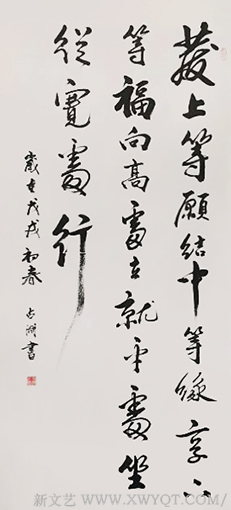 發上等願結中等緣享下
等福向高處立就平處坐
從寬處行
歲在戊戌初春
書
新文艺 WWW.XWYQT.COM